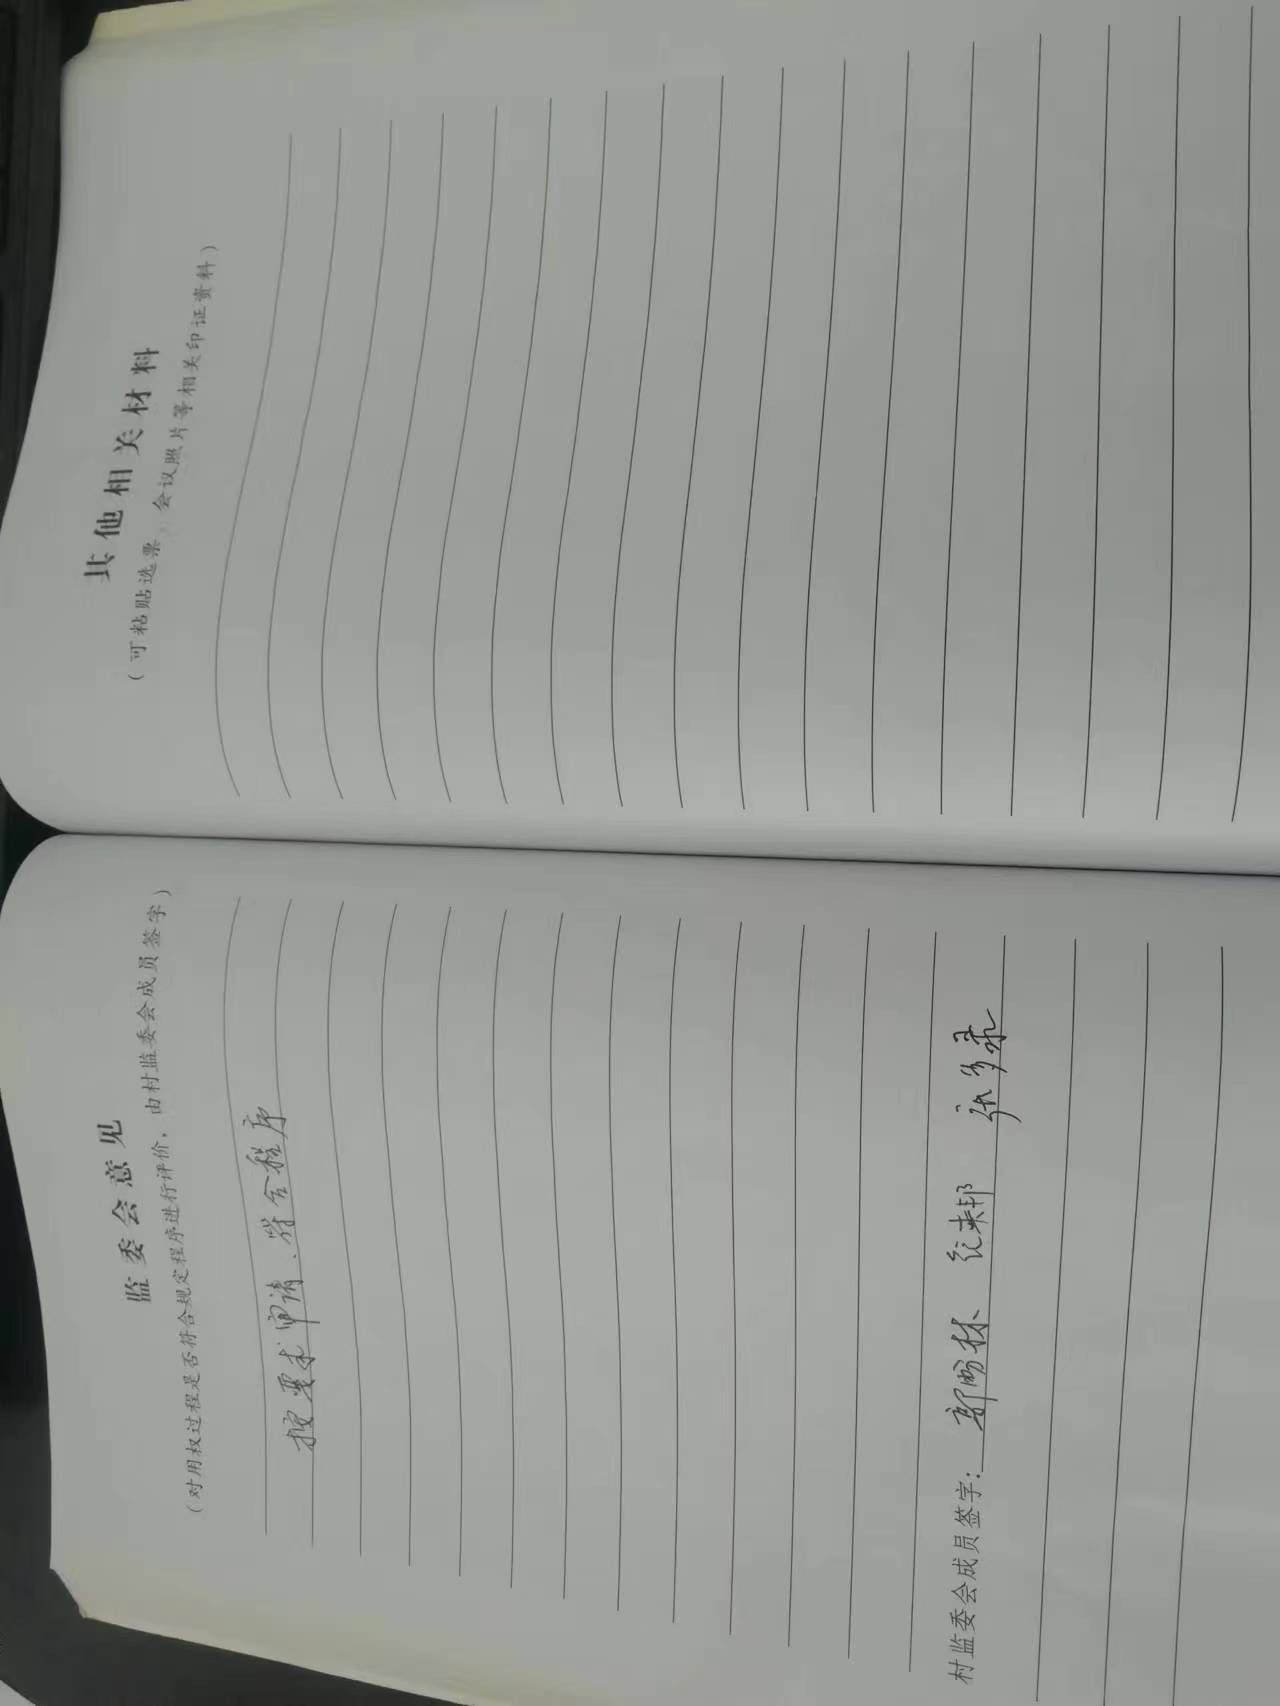 监委会意见
（对用权过程是否符合规定程序进行评价，由村监委会成员签字）
按要求申请、符合程序
村监委会成员签字：郭 林、纪来邦 张多录
其他相关材料
（可粘贴选票、会议照片等相关印证资料）